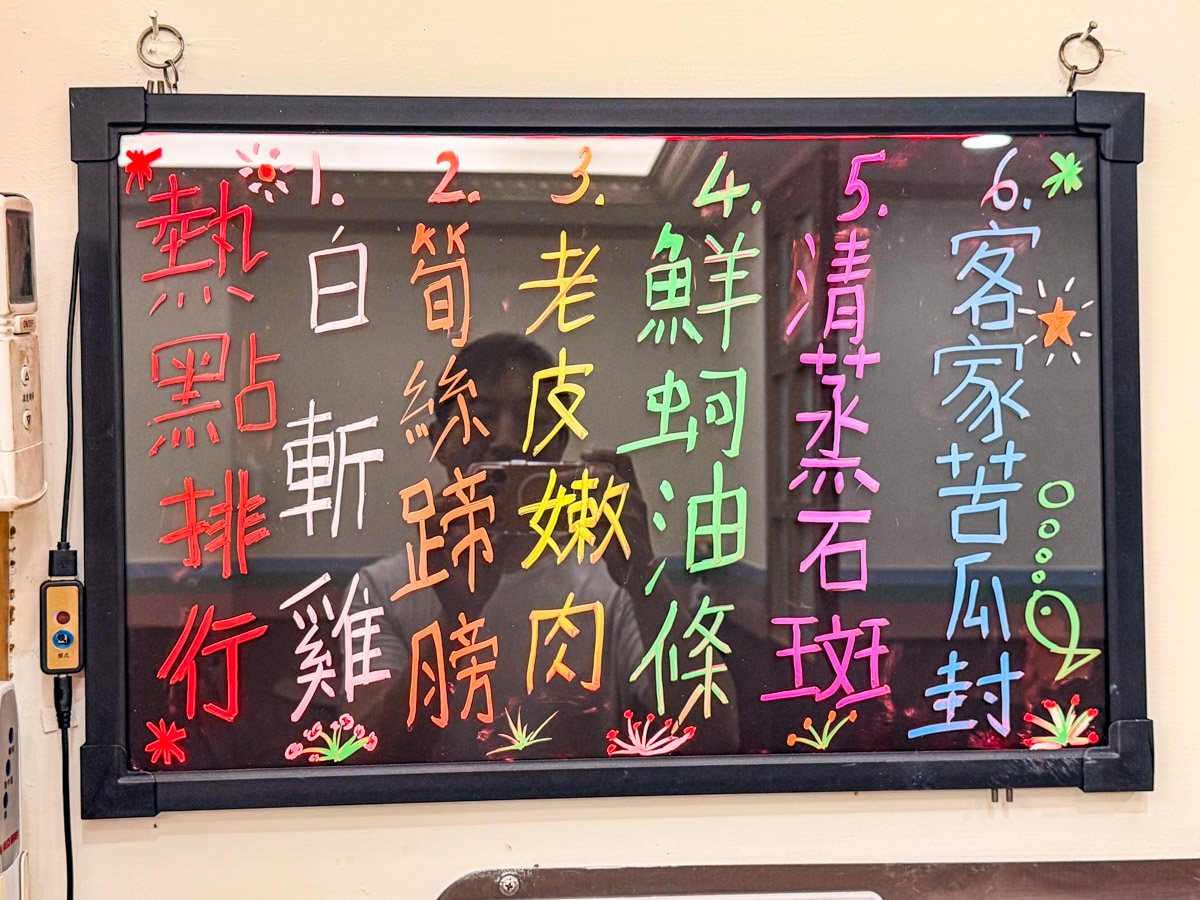 熱點排行
1. 白斬雞
2. 筍絲蹄膀
3. 老皮嫩肉
4. 鮮蚵油條
5. 清蒸石斑
6. 客家苦瓜封
模式